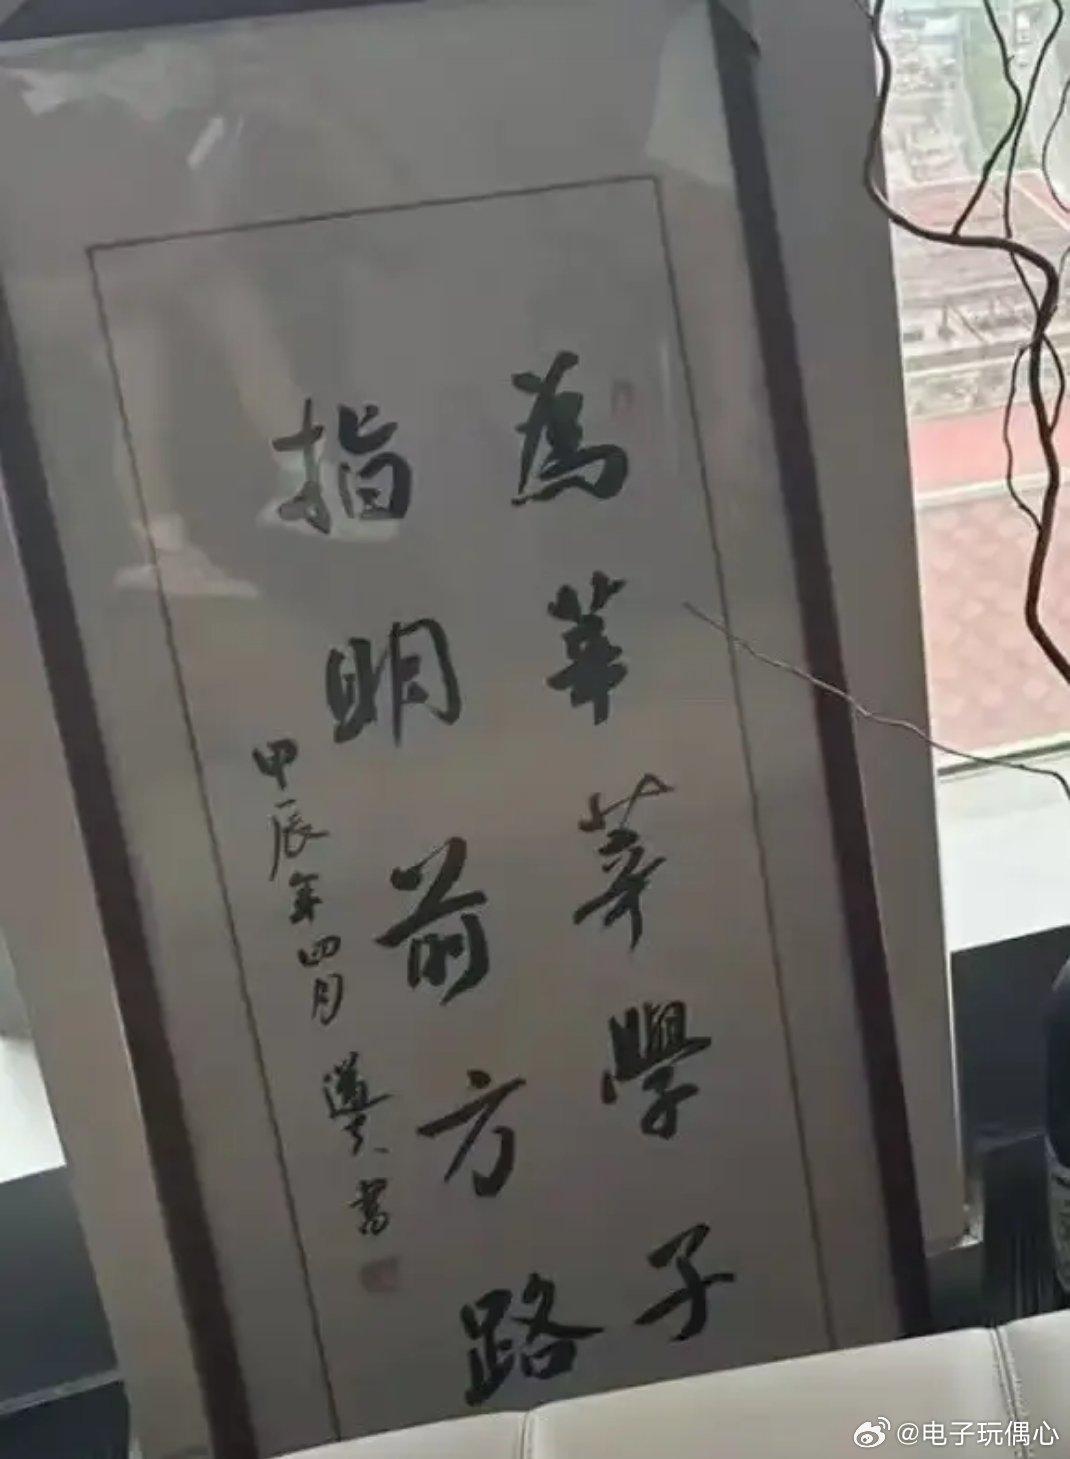 為莘莘學子
指明前方路
甲辰年四月
書
@电子玩偶心